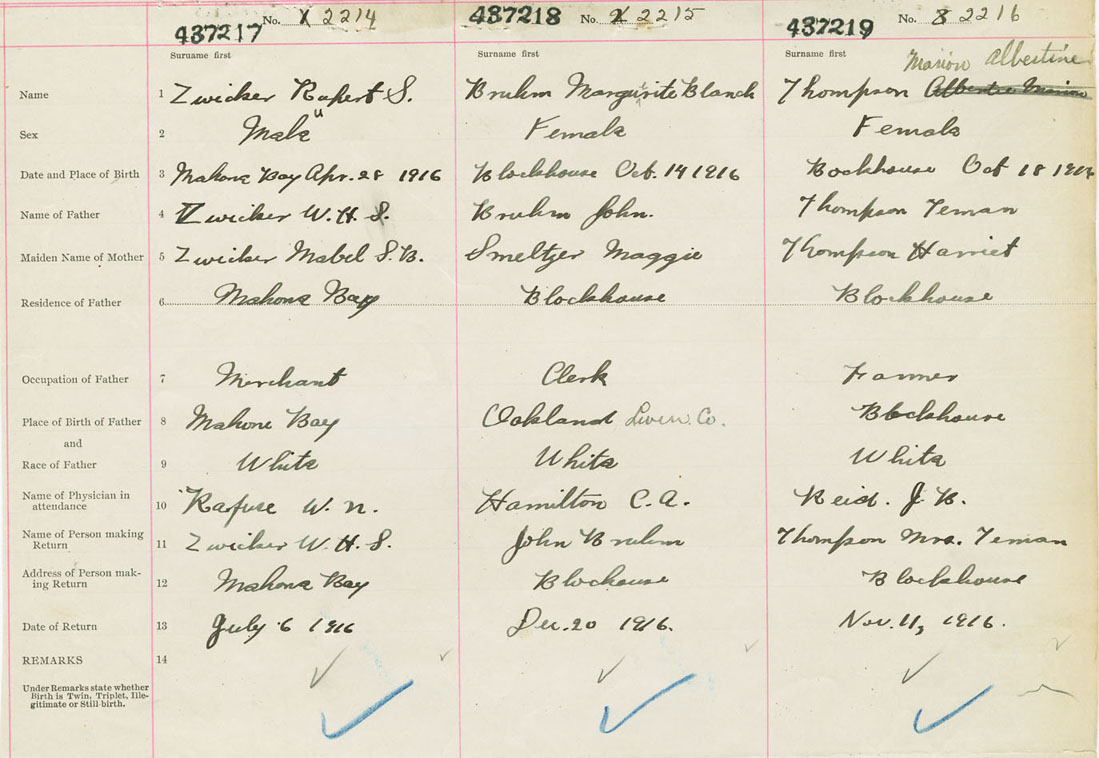 No. X 2214
437217
437218 No. X 2215
No. 8 2216
437219
Surname first
Surname first
Surname first
Marion Albertine
Name 1 Zwicker Rupert S. Bruhm Marguirite Blanch Thompson Albertie Marion
Sex 2 Male Female Female
Date and Place of Birth 3 Mahone Bay Apr. 28 1916 Blockhouse Oct. 14 1916 Bockhouse Oct 18 1916
Name of Father 4 Zwicker W. H. S. Bruhm John. Thompson Teman
Maiden Name of Mother 5 Zwicker Mabel S. B. Smeltzer Maggie Thompson Harriet
Residence of Father 6 Mahone Bay Blockhouse Blockhouse
Occupation of Father 7 Merchant Clerk Farmer
Place of Birth of Father 8 Mahone Bay Oakland Lunen. Co. Blockhouse
and
Race of Father 9 White White White
Name of Physician in
attendance 10 Rafuse W. N. Hamilton C. A. Reid. J. B.
Name of Person making
Return 11 Zwicker W. H. S. John Bruhm Thompson Mrs. Teman
Address of Person mak-
ing Return 12 Mahone Bay Blochouse Blockhouse
Date of Return 13 July 6 1916 Dec. 20 1916. Nov. 11, 1916.
REMARKS 14
Under Remarks state whether
Birth is Twin, Triplet, Ille-
gitimate or Still-birth.